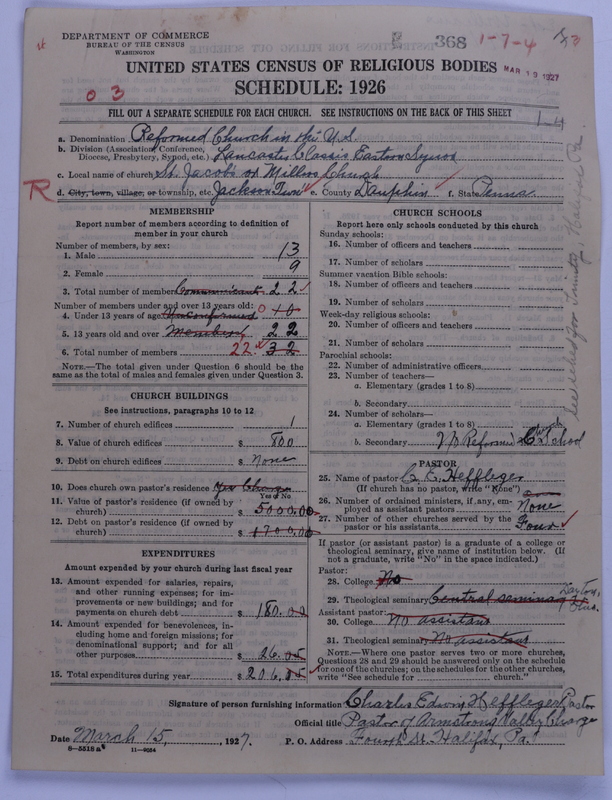 DEPARTMENT OF COMMERCE
BUREAU OF THE CENSUS
WASHINGTON
368
1-7-4
MAR 19 1927
UNITED STATES CENSUS OF RELIGIOUS BODIES
SCHEDULE: 1926
0 3
1-4
FILL OUT A SEPARATE SCHEDULE FOR EACH CHURCH. SEE INSTRUCTIONS ON THE BACK OF THIS SHEET
a. Denomination Reformed Church in the U.S.
b. Division (Association, Conference, Diocese, Presbytery, Synod, etc.) Lancaster Classis Eastern Synod
c. Local name of church St. Jacobs or Millers Church
R
d. City, town, village, or township, etc. Jackson Twn e. County Dauphin f. State Penna.
MEMBERSHIP
Report number of members according to definition of
member in your church
Number of members, by sex:
1. Male 13
2. Female 9
3. Total number of members Communicant 22
Number of members under and over 13 years old:
4. Under 13 years of age Unconfirmed 0 10
5. 13 years old and over Members 22
6. Total number of members 22 32
NOTE.—The total given under Question 6 should be the
same as the total of males and females given under Question 3.
CHURCH BUILDINGS
See instructions, paragraphs 10 to 12
7. Number of church edifices 1
8. Value of church edifices $ 800
9. Debt on church edifices $ None
10. Does church own pastor's residence Yes Charge
Yes or No
11. Value of pastor's residence (if owned by
church) $ 5000.00
12. Debt on pastor's residence (if owned by
church) $ 1700.00
EXPENDITURES
Amount expended by your church during last fiscal year
13. Amount expended for salaries, repairs,
and other running expenses; for im-
provements or new buildings; and for
payments on church debt $ 180.00
14. Amount expended for benevolences, in-
cluding home and foreign missions; for
denominational support; and for all
other purposes $ 26.85
15. Total expenditures during year $ 206.85
CHURCH SCHOOLS
Report here only schools conducted by this church
Sunday schools:
16. Number of officers and teachers
17. Number of scholars
Summer vacation Bible schools:
18. Number of officers and teachers
19. Number of scholars
Week-day religious schools:
20. Number of officers and teachers
21. Number of scholars
Parochial schools:
22. Number of administrative officers
23. Number of teachers—
a. Elementary (grades 1 to 8)
b. Secondary
24. Number of scholars—
a. Elementary (grades 1 to 8)
b. Secondary No Reformed Church School
PASTOR
25. Name of pastor C. E. Heffleger
(If church has no pastor, write "None")
26. Number of ordained ministers, if any, em-
ployed as assistant pastors None
27. Number of other churches served by the
pastor or his assistants Four
If pastor (or assistant pastor) is a graduate of a college or
theological seminary, give name of institution below. (If
not a graduate, write "No" in the space indicated.)
Pastor:
28. College No
29. Theological seminary Central seminary Dayton, Ohio.
Assistant pastor:
30. College No assistant
31. Theological seminary No assistant
NOTE.—Where one pastor serves two or more churches,
Questions 28 and 29 should be answered only on the schedule
for one of the churches; on the schedules for the other churches,
write "See schedule for church."
See sched for Trinity, Halifax Pa
Signature of person furnishing information Charles Edwin Heffleger, Pastor
Official title Pastor of Armstrong Valley Charge
Date March 15, 1927. P. O. Address Fourth St. Halifax, Pa.
8—5518a 11—9084